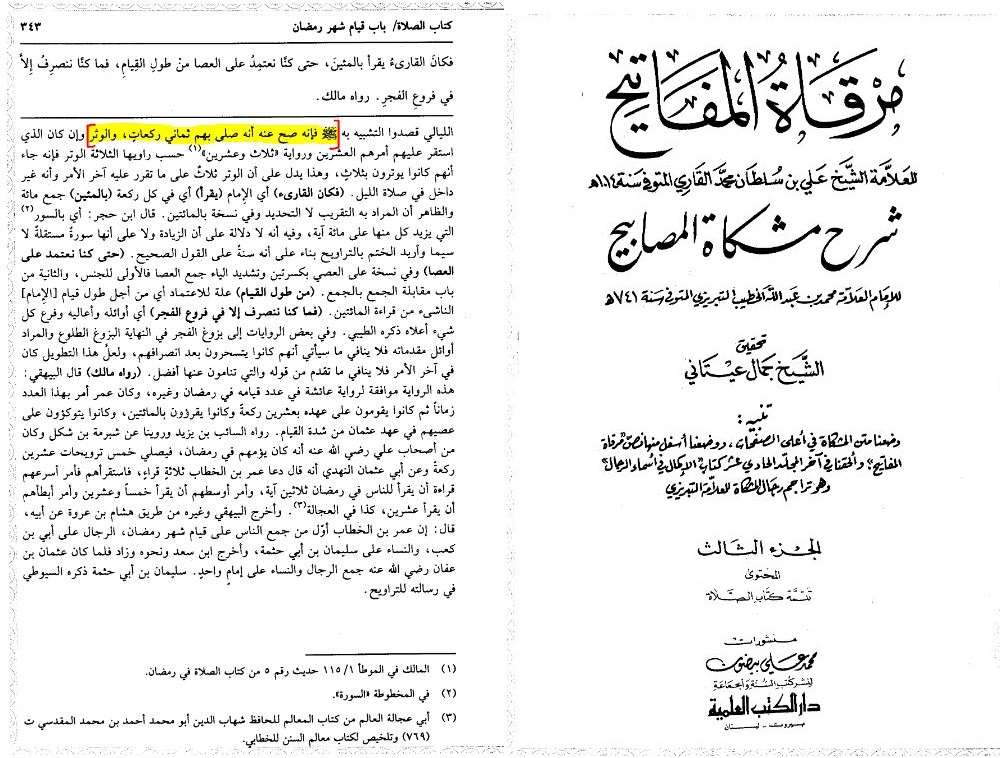 مرقاة المفاتيح
للعلامة الشيخ علي بن سلطان محمد القاري المتوفى سنة ١٠١٤هـ
شرح مشكاة المصابيح
للإمام العلامة محمد بن عبد الله الخطيب التبريزي المتوفى سنة ٧٤١هـ
تحقيق
الشيخ جمال عيتاني
تنبيه:
وضعنا متن المشكاة في أعلى الصفحات، ووضعنا أسفل منها نص "مرقاة
المفاتيح" وألحقنا في آخر المجلد الحادي عشر كتاب "الإكمال في أسماء الرجال"
وهو تراجم رجال المشكاة للعلامة التبريزي
الجزء الثالث
المحتوى
تتمة كتاب الصلاة
منشورات
محمد علي بيضون
لنشر كتب السنة والجماعة
دار الكتب العلمية
بيروت - لبنان
كتاب الصلاة/ باب قيام شهر رمضان
٣٤٣
فكانَ القارىءُ يقرأ بالمئينَ، حتى كنَّا نعتمِدُ على العصا منْ طولِ القِيامِ، فما كنَّا ننصرِفُ إلاَّ
في فروعِ الفجرِ. رواه مالك.
الليالي قصدوا التشبيه به ﷺ فإنه صح عنه أنه صلى بهم ثماني ركعاتٍ، والوتر وإن كان الذي
استقر عليهم أمرهم العشرين ورواية «ثلاث وعشرين»(١) حسب راويها الثلاثة الوتر فإنه جاء
أنهم كانوا يوترون بثلاثٍ، وهذا يدل على أن الوتر ثلاثٌ على ما تقرر عليه آخر الأمر وأنه غير
داخل في صلاة الليل. (فكان القارىء) أي الإمام (يقرأ) أي في كل ركعة (بالمئين) جمع مائة
والظاهر أن المراد به التقريب لا التحديد وفي نسخة بالمائتين. قال ابن حجر: أي بالسور(٢)
التي يزيد كل منها على مائة آية، وفيه أنه لا دلالة على أن الزيادة ولا على أنها سورةٌ مستقلةٌ لا
سيما وأريد الختم بالتراويح بناء على أنه سنة على القول الصحيح. (حتى كنا نعتمد على
العصا) وفي نسخة على العصي بكسرتين وتشديد الياء جمع العصا فالأولى للجنس، والثانية من
باب مقابلة الجمع بالجمع. (من طول القيام) علة للاعتماد أي من أجل طول قيام [الإمام]
الناشىء من قراءة المائتين. (فما كنا ننصرف إلا في فروع الفجر) أي أوائله وأعاليه وفرع كل
شيء أعلاه ذكره الطيبي. وفي بعض الروايات إلى بزوغ الفجر في النهاية البزوغ الطلوع والمراد
أوائل مقدماته فلا ينافي ما سيأتي أنهم كانوا يتسحرون بعد انصرافهم، ولعلَّ هذا التطويل كان
في آخر الأمر فلا ينافي ما تقدم من قوله والتي تنامون عنها أفضل. (رواه مالك) قال البيهقي:
هذه الرواية موافقة لرواية عائشة في عدد قيامه في رمضان وغيره، وكان عمر أمر بهذا العدد
زماناً ثم كانوا يقومون على عهده بعشرين ركعةً وكانوا يقرؤون بالمائتين، وكانوا يتوكؤون على
عصيهم في عهد عثمان من شدة القيام. رواه السائب بن يزيد وروينا عن شبرمة بن شكل وكان
من أصحاب علي رضي الله عنه أنه كان يؤمهم في رمضان، فيصلي خمس ترويحات عشرين
ركعة وعن أبي عثمان النهدي أنه قال دعا عمر بن الخطاب ثلاثة قراءٍ، فاستقرأهم فأمر أسرعهم
قراءة أن يقرأ للناس في رمضان ثلاثين آية، وأمر أوسطهم أن يقرأ خمساً وعشرين وأمر أبطأهم
أن يقرأ عشرين، كذا في العجالة(٣). وأخرج البيهقي وغيره من طريق هشام بن عروة عن أبيه،
قال: إن عمر بن الخطاب أوّل من جمع الناس على قيام شهر رمضان، الرجال على أبي بن
كعب، والنساء على سليمان بن أبي حثمة، وأخرج ابن سعد ونحوه وزاد فلما كان عثمان بن
عفان رضي الله عنه جمع الرجال والنساء على إمامٍ واحدٍ. سليمان بن أبي حثمة ذكره السيوطي
في رسالته للتراويح.
(١) المالك في الموطأ ١/ ١١٥ حديث رقم ٥ من كتاب الصلاة في رمضان.
(٢) في المخطوطة «السورة».
(٣) أبي عجالة العالم من كتاب المعالم للحافظ شهاب الدين أبو محمد أحمد بن محمد المقدسي ت
(٧٦٩) وتلخيص لكتاب معالم السنن للخطابي.